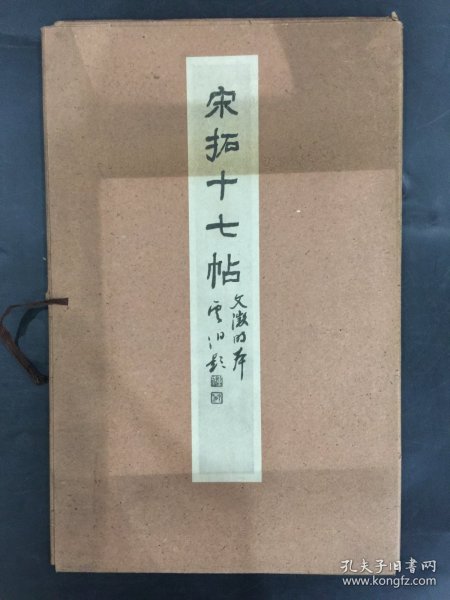 宋拓十七帖
文徵明本
孔夫子旧书网
www.kongfz.com